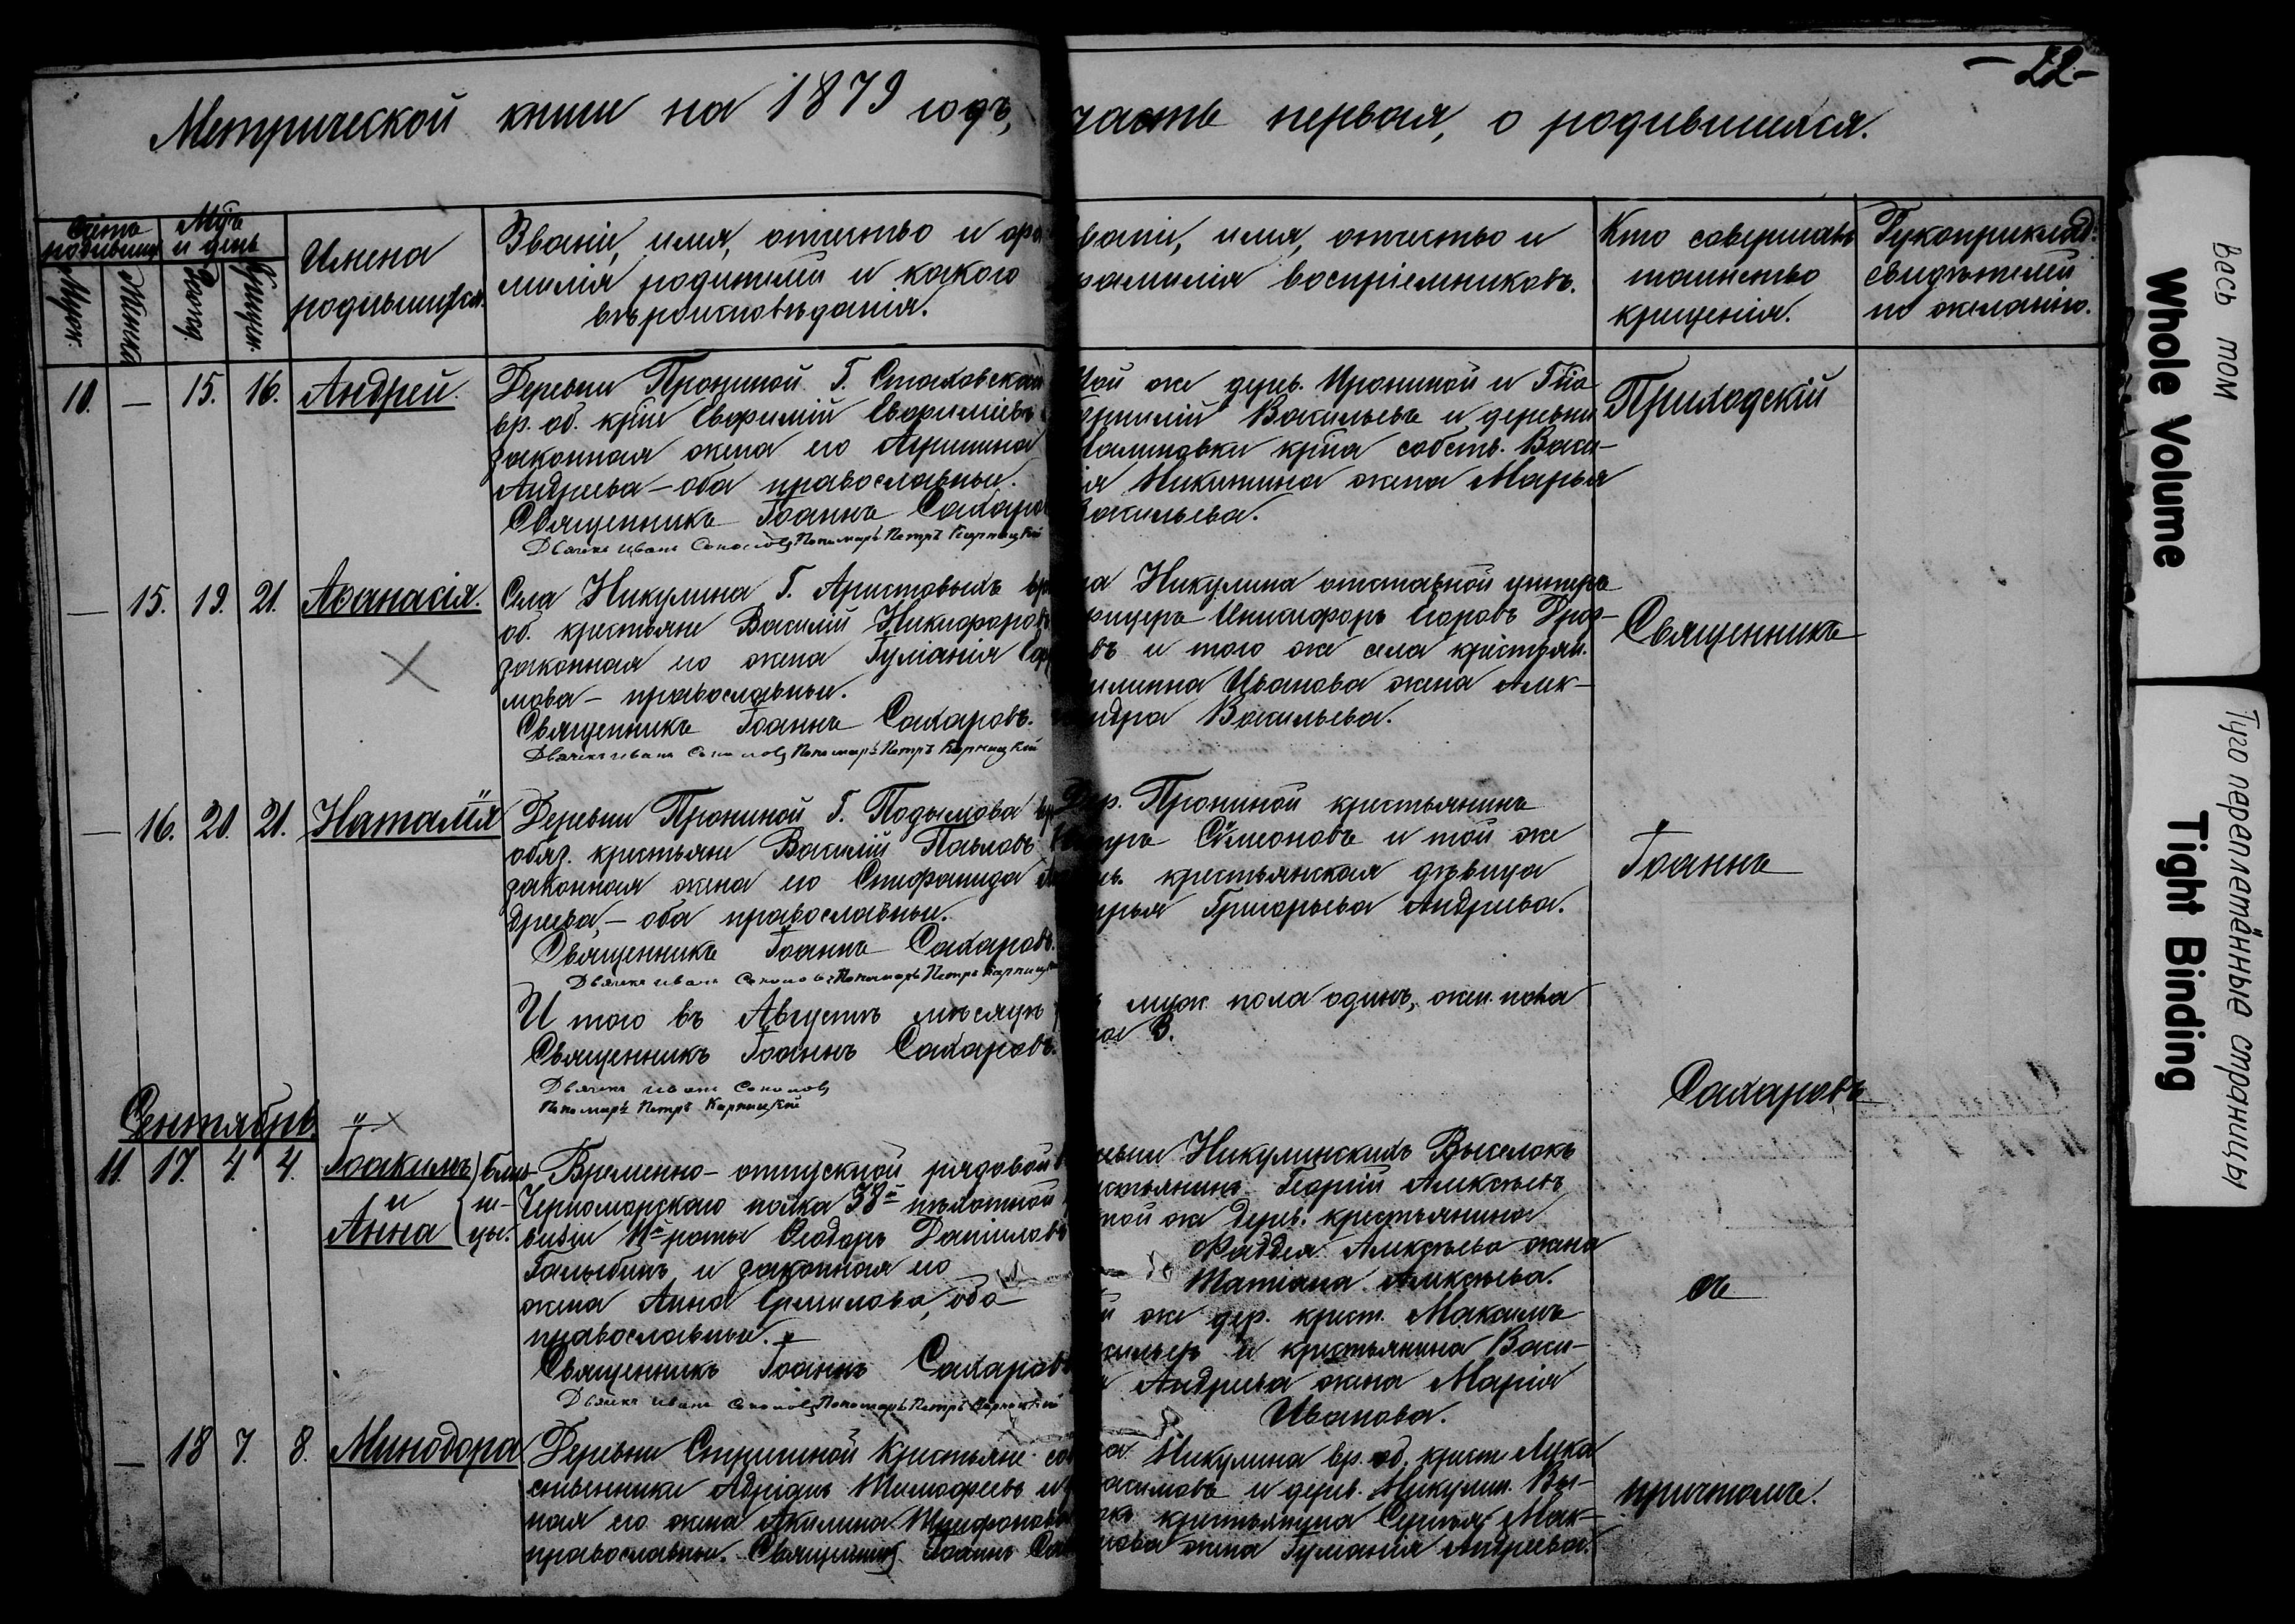 — 22 —
Метрической книги на 1879 годъ, часть первая, о родившихся.
Счетъ родившихся
Муж.
Женска
Мѣс. и день
Рожд.
Крещен.
Имена
родившихся.
Званіе, имя, отчество и фа
милія родителей и какого
вѣроисповѣданія.
Званіе, имя, отчество и
фамилія воспріемниковъ.
Кто совершалъ
таинство
крещенія.
Рукоприклад.
свидѣтелей
по желанію.
10. — 15. 16. Андрей.
Деревни Прониной Г. Стаховской
вр. об. кр-не Евфимій Евфиміевъ
законная жена его Агрипина
Андреева — оба православные.
Священникъ Іоаннъ Сахаровъ
Дьячекъ Иванъ Соколовъ Пономарь Петръ Карницкій
Той же дерев. Прониной и Г-на
Васильевъ и деревни
Калиновки кр-на собств. Васи-
лія Никитина жена Марья
Васильева.
— 15. 19. 21. Аѳанасія.
Села Никулина Г. Аристовыхъ вр
об. крестьяне Василій Никифоровъ
законная его жена Гуманія Ефи
мова — православные.
Священникъ Іоаннъ Сахаровъ.
Дьячекъ Иванъ Соколовъ Пономарь Петръ Карницкій
Никулина отставной унтеръ
офицеръ Никифоръ Егоровъ
въ и того же села крестьян.
Иванова жена Алек-
сандра Васильева.
— 16. 20. 21. Наталія
Деревни Прониной Г. Подымова вр
обяз. крестьяне Василій Павловъ
законная жена его Стефанида Ан
дреева, — оба православные.
Священникъ Іоаннъ Сахаровъ.
Дьячекъ Иванъ Соколовъ Пономарь Петръ Карницкій
Дер. Прониной крестьянинъ
Петръ Сѵмеоновъ и той же
дерев. крестьянская дѣвица
Марья Григорьева Андреева.
Итого въ Августѣ мѣсяцѣ
муж. пола одинъ, жен. пола
3.
Священникъ Іоаннъ Сахаровъ.
Дьячекъ Иванъ Соколовъ
Пономарь Петръ Карницкій
Сентябрь.
11. 17. 4. 4. Іоакимъ
и
Анна
близ-
не-
цы.
Временно-отпускной рядовой
Черноморскаго полка 38й пѣхотной
визіи 11й роты Ѳеодоръ Даніиловъ
Галыбинъ и законная его
жена Анна Ермилова, оба
православные.
Священникъ Іоаннъ Сахаровъ
Дьячекъ Иванъ Соколовъ Пономарь Петръ Карницкій
Никулинскихъ Выселокъ
крестьянинъ Георгій Алексѣевъ
той же дерев. крестьянина
Ѳаддея Алексѣева жена
Татіана Алексѣева.
же дер. крест. Максимъ
Васильевъ и крестьянина Васи-
лія Андреева жена Марія
Иванова.
— 18 7. 8. Минодора
Деревни Стригиной крестьяне соб
ственники Адріанъ Тимофеевъ и
ная его жена Акилина Трифонова
православные. Священникъ Іоаннъ Сах
Никулина вр. об. крест. Лука
и дерев. Никулин. Вы-
крестьянина Сергѣя Мак-
симова жена Гуманія Андреева.
Приходскій
Священникъ
Іоаннъ
Сахаровъ
съ
причтомъ.
весь том
Whole Volume
Туго переплетённые страницы
Tight Binding